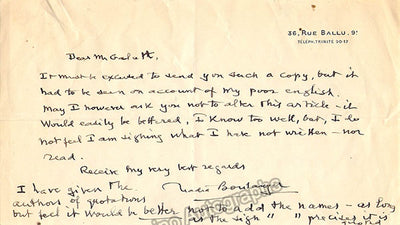 36, RUE BALLU. 9e
TÉLÉPH. TRINITÉ 20-17
Dear Mr
It must be excused to send you such a copy, but it
had to be seen on account of my poor english.
May I however ask you not to alter this article - it
would easily be bettered, I know too well, but, I do
not feel I am signing what I have not written - nor
read.
Receive my very best regards
Nadia Boulanger
I have given the
authors of quotations
but feel it would be better not to add the names - as long
as the sign " " precises it is